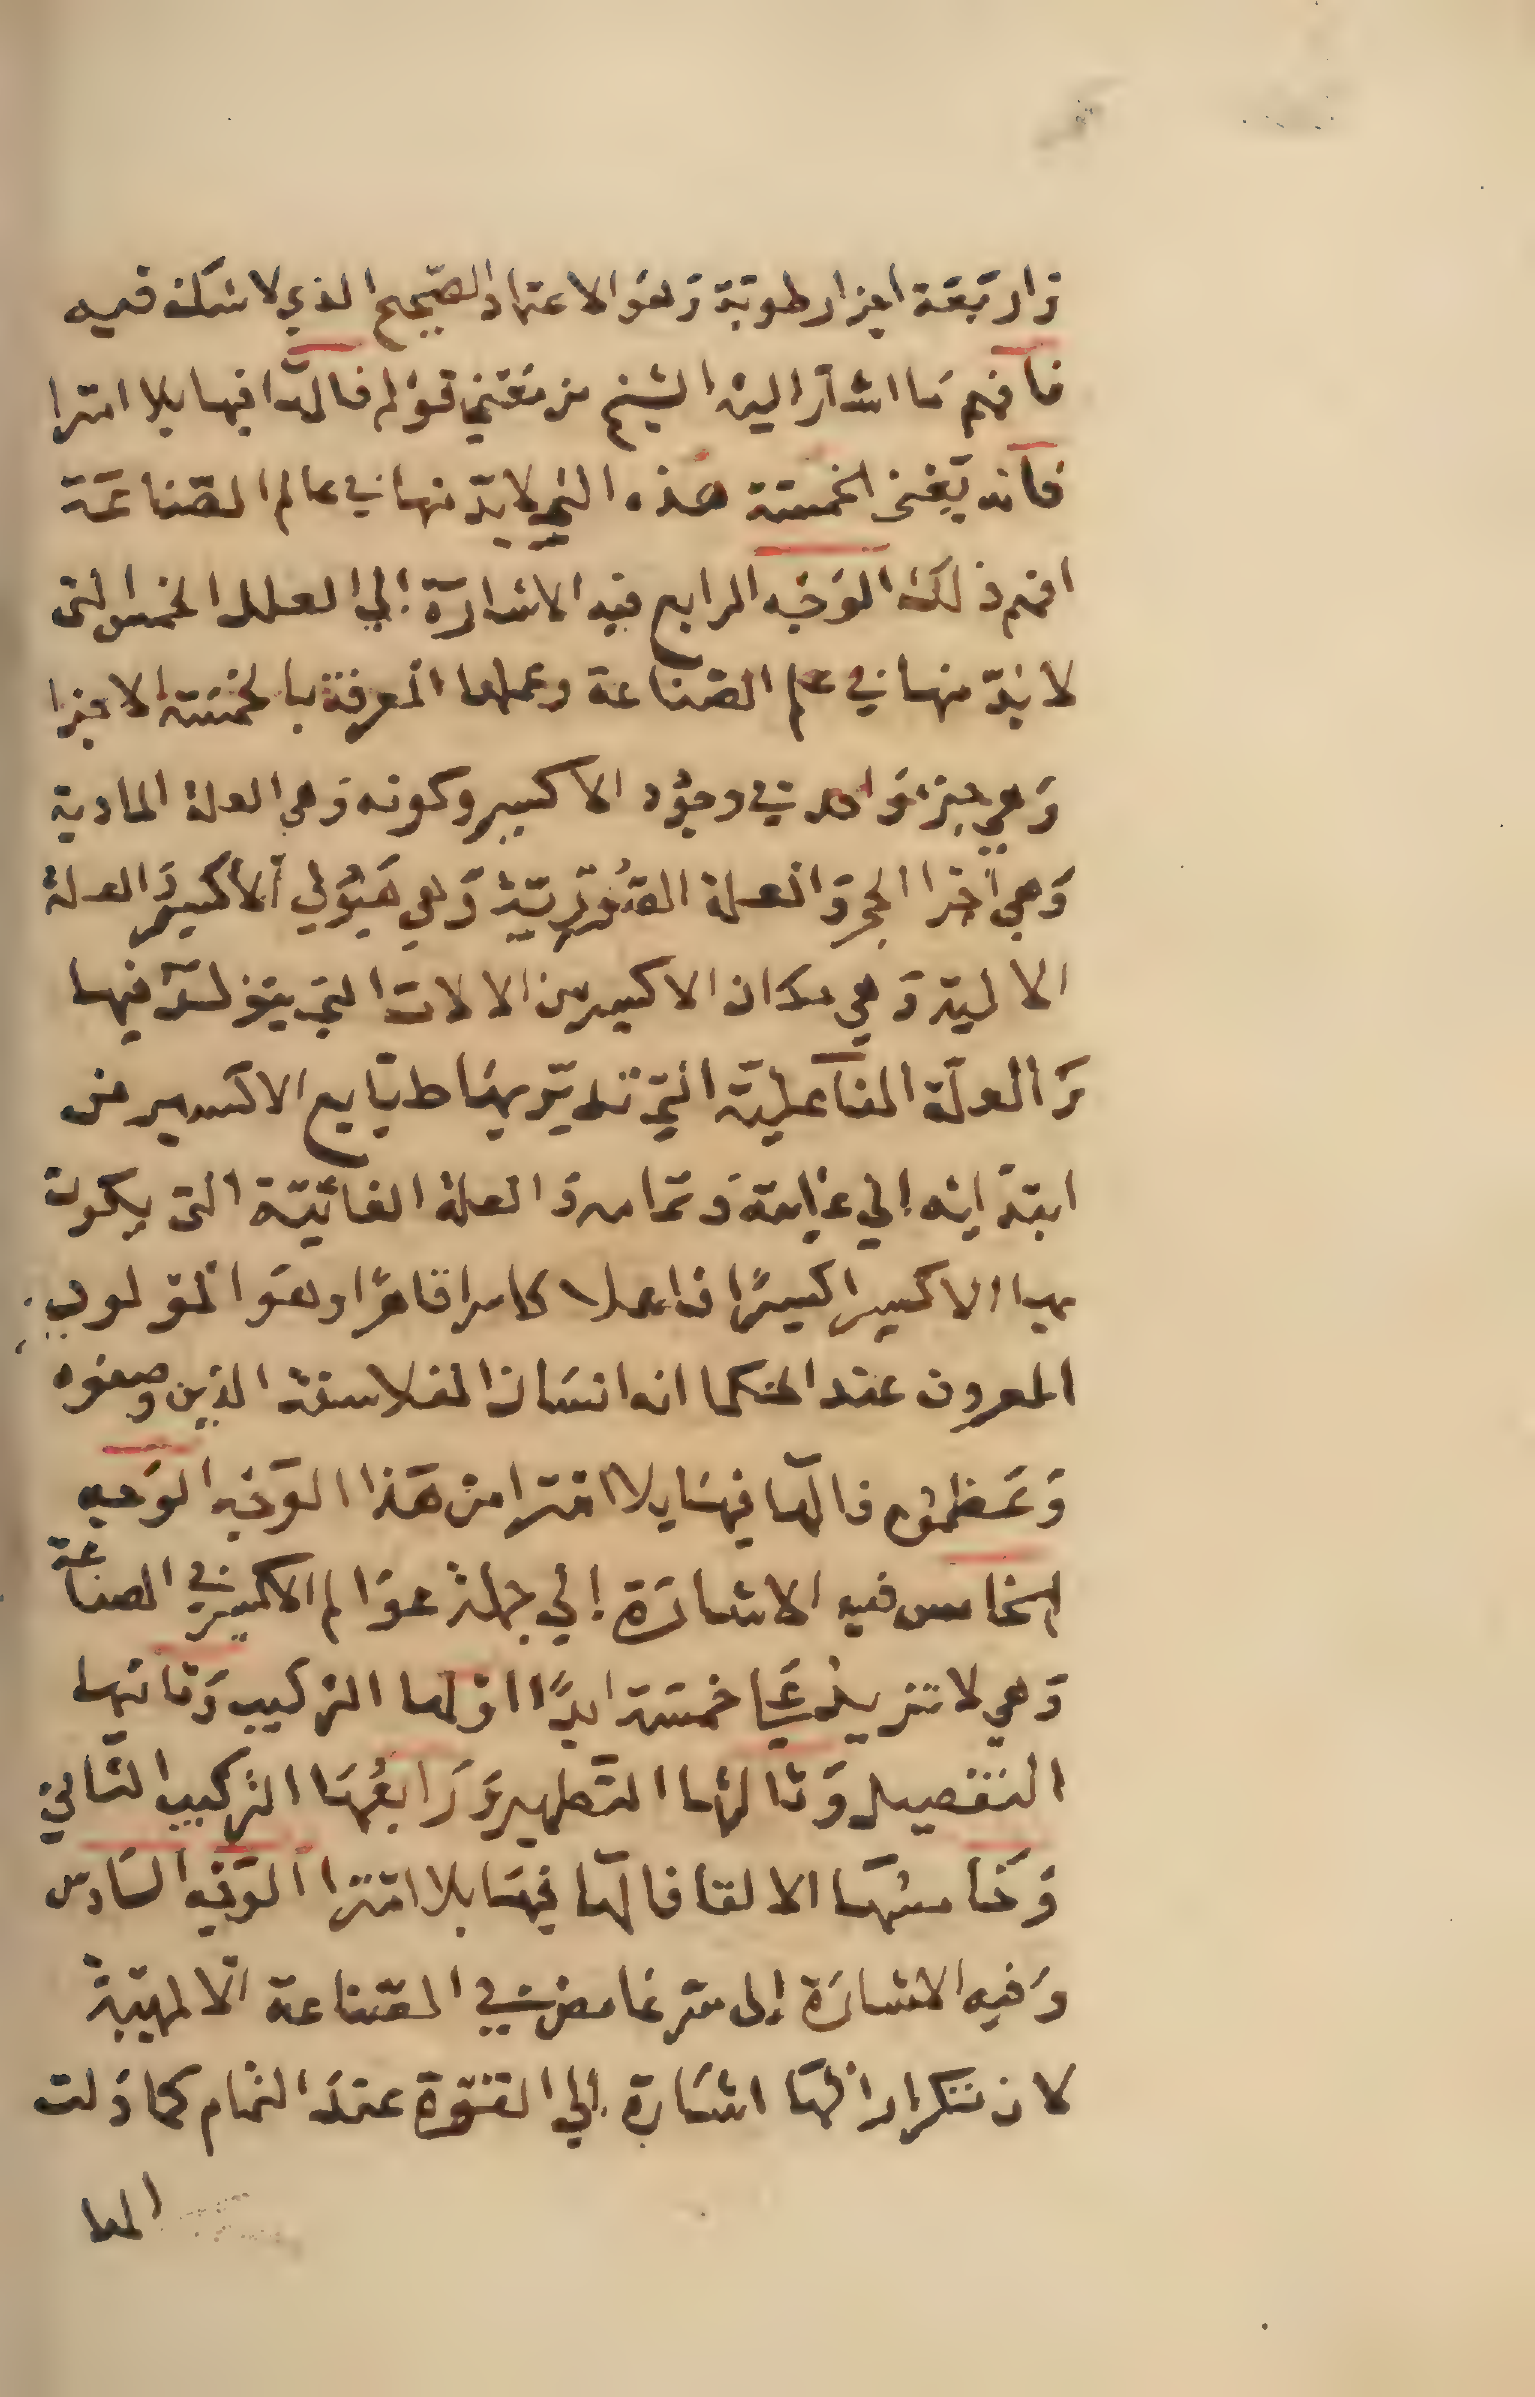 واربعة اجزا رطوبة وهو الاعتماد الصحيح الذي لا شك فيه
فافهم ما اشار اليه الشيخ من معني قوله فالها فيها بلا امترا
فانه يعني الخمسة هذه التي لا بد منها في عالم الصناعة
افهم ذلك الوجه الرابع فيه الاشارة الي العلل الخمس التي
لا بد منها في علم الصناعة وعملها المعرفة بالخمسة الاجزا
وهي جزو واحد في وجود الاكسير وكونه وهي العلة المادية
وهي اجزا الحجر والعلة الصورية وهي هيولي الاكسير والعلة
الالية وهي مكان الاكسير من الالات التي يتولد فيها
والعلة الفاعلية التي تدبر بها طبايع الاكسير من
ابتدايه الي غايته وتمامه والعلة الغائية التي يكون
بها الاكسير اكسيرًا فاعلا كاسرا قاهرًا وهو المولود
المعروف عند الحكما انه انسان الفلاسفة الذين وصفوه
وعظموه فالها فيها بلا امترا من هذا الوجه الوجه
الخامس فيه الاشارة الي جملة عوالم الاكسير في الصناعة
وهي لا تزيد علي خمسة ابدًا اولها التركيب وثانيها
التفصيل وثالثها التطهير ورابعها التركيب الثاني
وخامسها الالقا فالها فيها بلا امترا الوجه السادس
وفيه الاشارة إلى سر غامض في الصناعة الالهية
لان تكرار الها اشارة الي القوة عند التمام كما دلت
الها